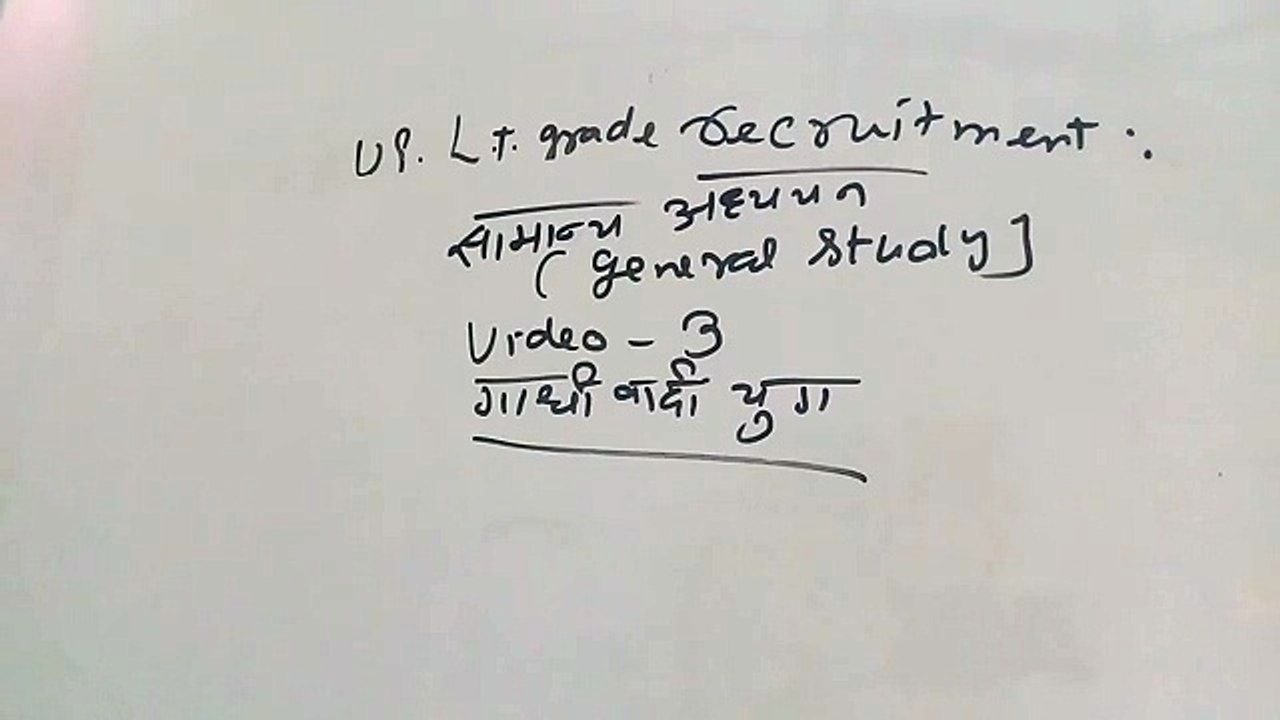 UP. L.t. grade recruitment :
सामान्य अध्ययन
( general study ]
Video - 3
गाधी वादी युग